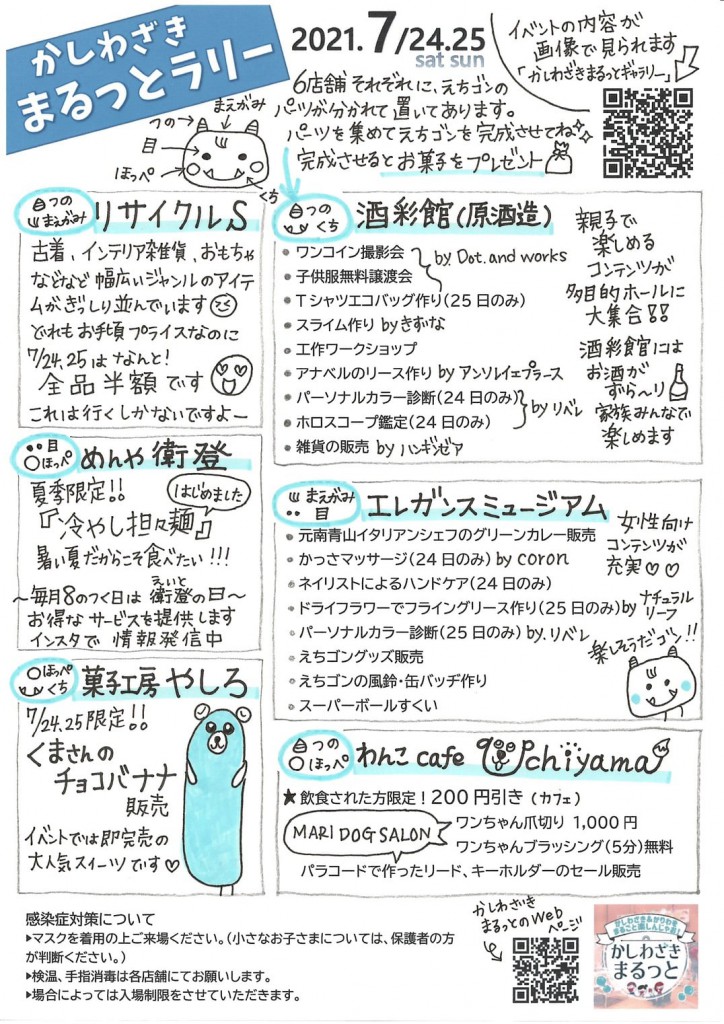 かしわざき
まるっとラリー
2021.7/24.25
sat sun
イベントの内容が
画像で見られます
「かしわざきまるっとギャラリー」
6店舗それぞれに、えちゴンの
パーツが分かれて置いてあります。
パーツを集めてえちゴンを完成させてね
完成させるとお菓子をプレゼント
まえがみ
つの
目
ほっぺ
くち
つの
まえがみ
リサイクルS
古着、インテリア雑貨、おもちゃ
などなど幅広いジャンルのアイテ
ムがぎっしり並んでいます
どれもお手頃プライスなのに
7/24.25はなんと!
全品半額です
これは行くしかないですよー
つの
くち
酒彩館(原酒造)
ワンコイン撮影会
子供服無料譲渡会
by Dot.and works
Tシャツエコバッグ作り(25日のみ)
スライム作り byきずな
工作ワークショップ
アナベルのリース作り by アンソレイエプラース
パーソナルカラー診断(24日のみ)
ホロスコープ鑑定(24日のみ)
by リベレ
雑貨の販売 by ハンギンゼア
親子で
楽しめる
コンテンツが
多目的ホールに
大集合!!
酒彩館には
お酒が
ずら〜リ
家族みんなで
楽しめます
目
ほっぺ
めんや 衛登
夏季限定!!
はじめました
『冷やし担々麺』
暑い夏だからこそ食べたい!!!
〜毎月8のつく日は衛登の日〜
えいと
お得なサービスを提供します
インスタで情報発信中
まえがみ
目
エレガンスミュージアム
元南青山イタリアンシェフのグリーンカレー販売
かっさマッサージ(24日のみ) by coron
ネイリストによるハンドケア(24日のみ)
ドライフラワーでフライングリース作り(25日のみ)by ナチュラル
リーフ
パーソナルカラー診断(25日のみ) by.リベレ
えちゴングッズ販売
えちゴンの風鈴・缶バッヂ作り
スーパーボールすくい
女性向け
コンテンツが
充実♡♡
楽しそうだゴン!!
ほっぺ
くち
菓子工房 やしろ
7/24.25限定!!
くまさんの
チョコバナナ
販売
イベントでは即完売の
大人気スイーツです♡
つの
ほっぺ
わんこ cafe Uchiyama
★飲食された方限定!200円引き(カフェ)
MARI DOG SALON
ワンちゃん爪切り 1,000円
ワンちゃんブラッシング(5分)無料
パラコードで作ったリード、キーホルダーのセール販売
感染症対策について
▶マスクを着用の上ご来場ください。(小さなお子さまについては、保護者の方
が判断ください。)
▶検温、手指消毒は各店舗にてお願いします。
▶場合によっては入場制限をさせていただきます。
かしわざき
まるっとのWeb
ページ
かしわざき
まるっと